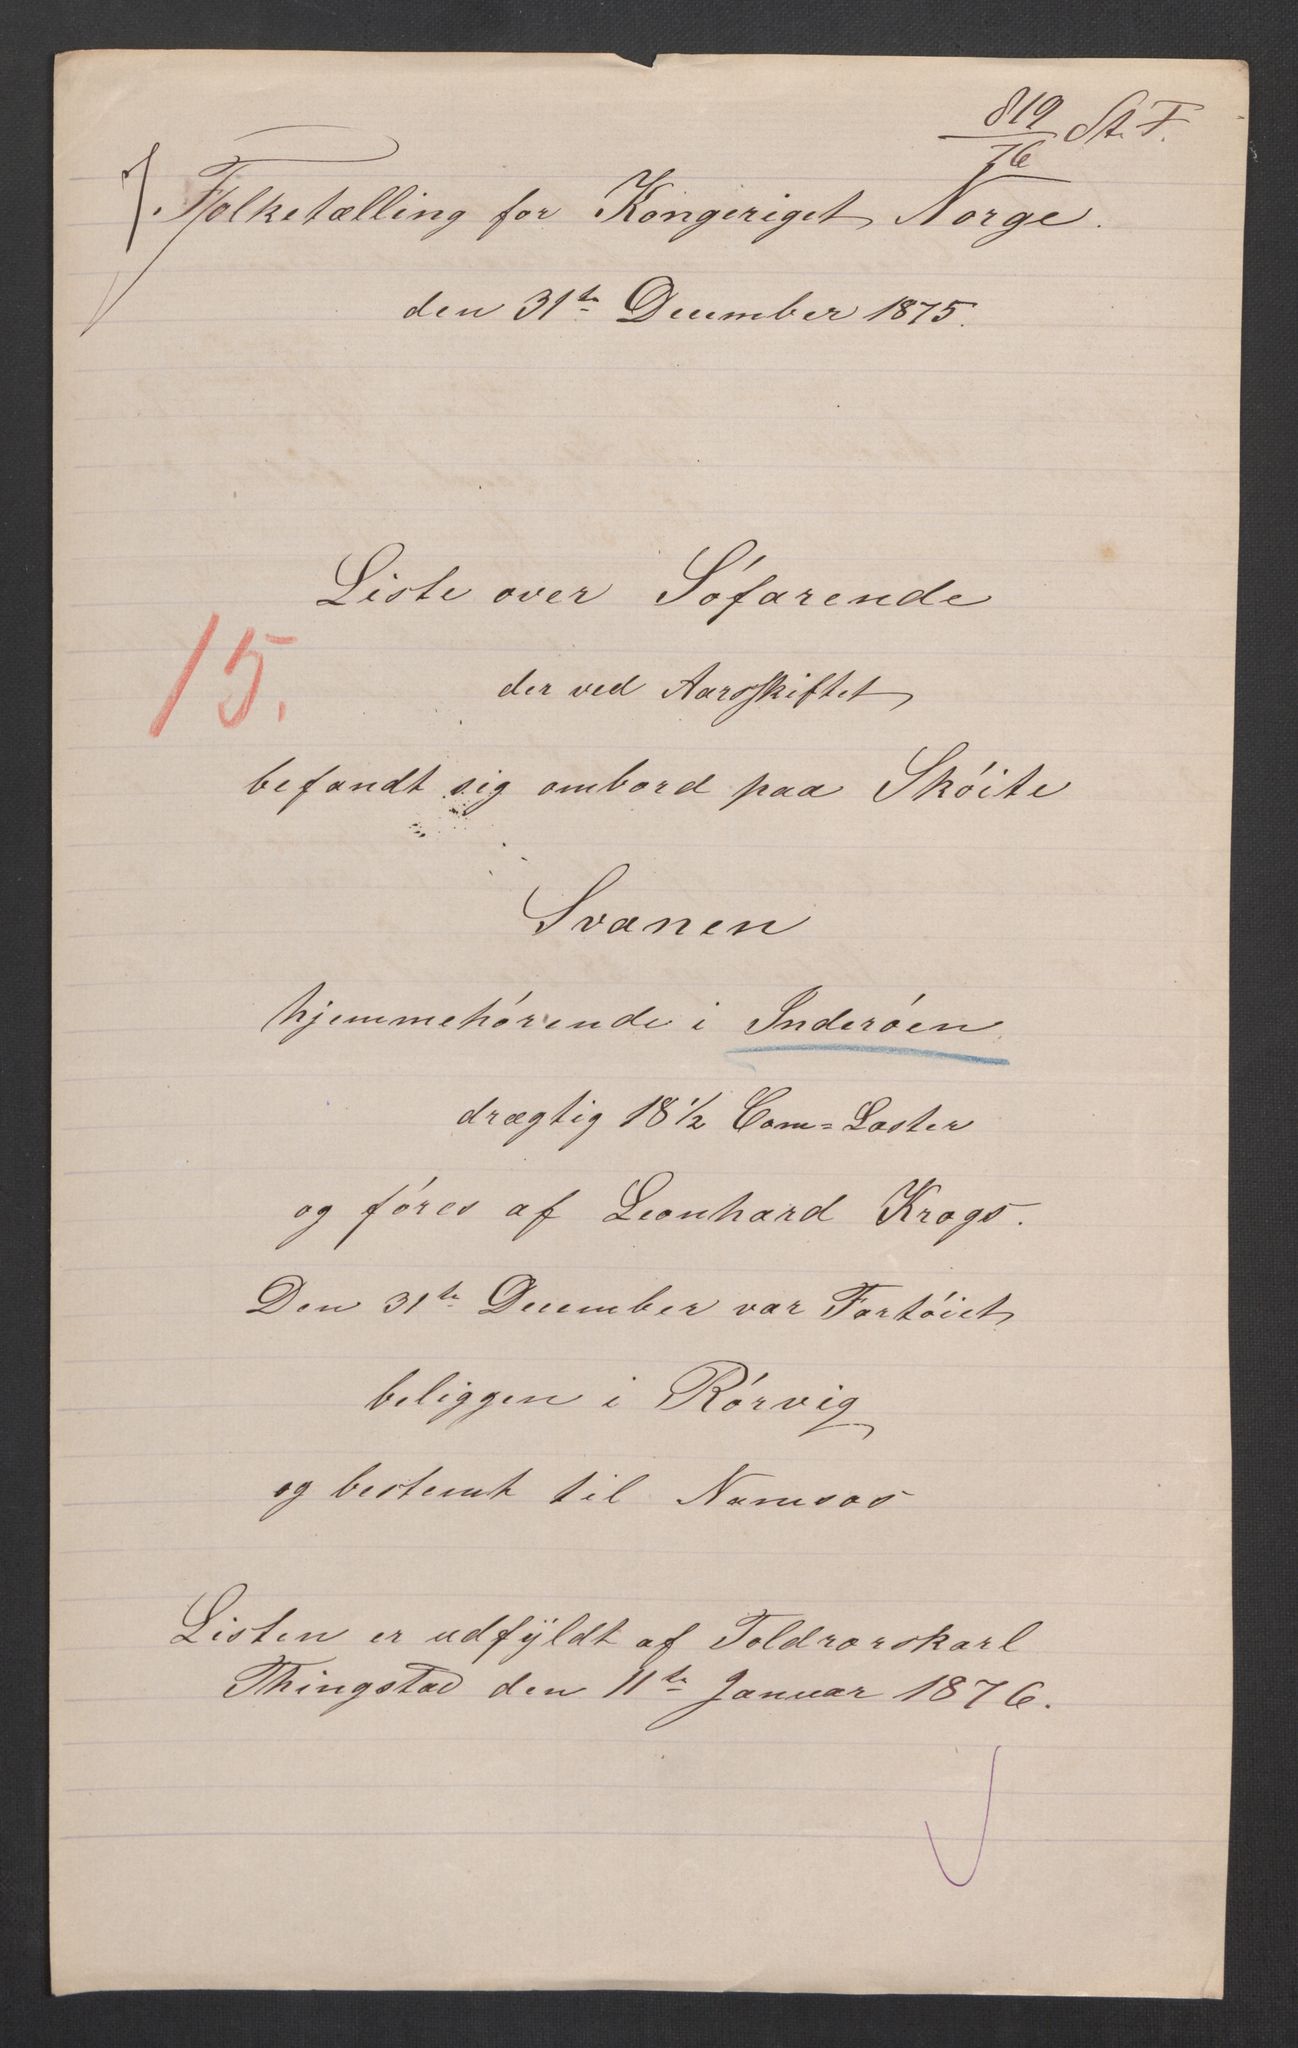 819/76 St. F.
Folketælling for Kongeriget Norge.
den 31te December 1875.
Liste over Söfarende
15.
der ved Aarsskiftet
befandt sig ombord paa Sköite
Svanen
hjemmehörende i Inderöen.
drægtig 18 1/2 Com=Læster
og föres af Leonhard Krogs.
Den 31te December var Fartöiet
beliggen i Rörvig
og bestemt til Namsos
Listen er udfyldt af Toldrorskarl
Thingstad den 11te Januar 1876.